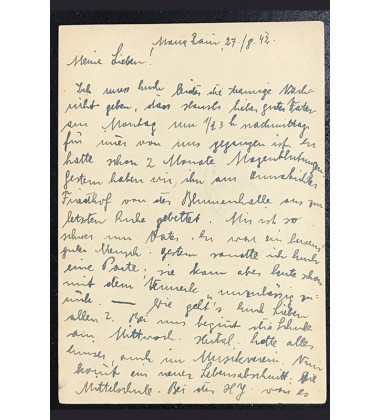 Mang hain, 27/8.42.
Meine Lieben!
Ich muss Euch leider die traurige Nach-
richt geben, dass unser lieber guter Vater
am Montag um 1/2 3 h nachmittag
für immer von uns gegangen ist. Er
hatte schon 2 Monate Magenblutungen.
Gestern haben wir ihn am
Friedhof von der Blumenhalle aus zur
letzten Ruhe gebettet. Mir ist so
schwer um Vater. Er war ein
guter Mensch. Gestern sandte ich Euch
eine Parte, sie kam aber heute schon
mit dem Vermerk unzulässig zu-
rück. — Wie geht's Euch Lieben
allen? Bei uns beginnt die Schule
am Mittwoch. hatte alles
auch im Musikverein. Nun
beginnt ein neuer Lebensabschnitt: die
Mittelschule. Bei der HJ. war es